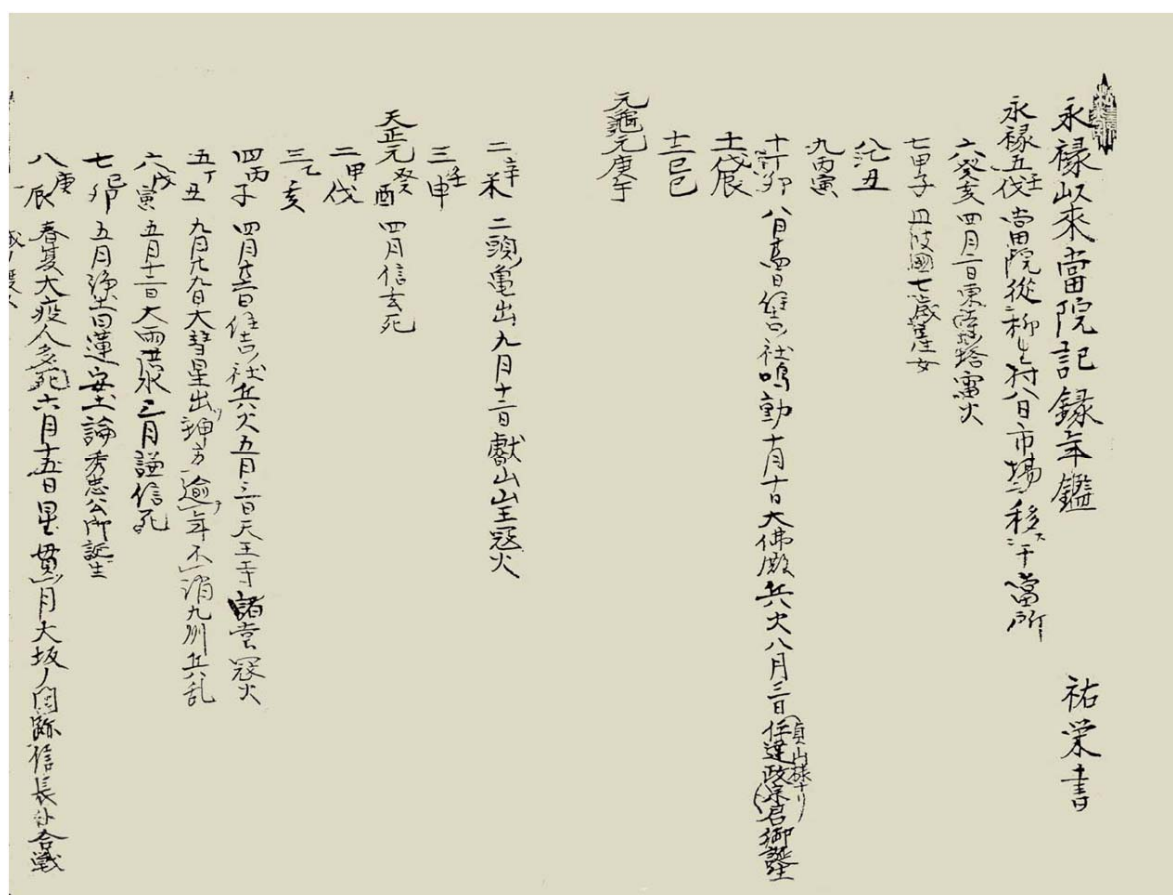 永禄以來當院記録年鑑 祐栄書
永禄五壬戌 當院從柳生村八日市場移于當所
六癸亥 四月二日東 塔雷火
七甲子 丹波國七歳 産女
八乙丑
九丙寅
十丁卯 八月 日住吉社鳴動十月十日大佛殿兵火八月三日伊達政宗君御誕生(貞山様ナリ)
十一戊辰
十二己巳
元龜元庚午
二辛未 二頭亀出九月十二日叡山山王冦火
三壬申
天正元癸酉 四月信玄死
二甲戌
三乙亥
四丙子 四月 日住吉社兵火五月三日天王寺諸堂冦火
五丁丑 九月廿九日大彗星出 坤方逾年不消九州兵乱
六戊寅 五月十二日大雨洪水三月謙信死
七己卯 五月浄土日蓮安土論秀忠公所誕生
八庚辰 春夏大疫人多死六月十五日星貫月大坂ノ 跡信長ト合戦